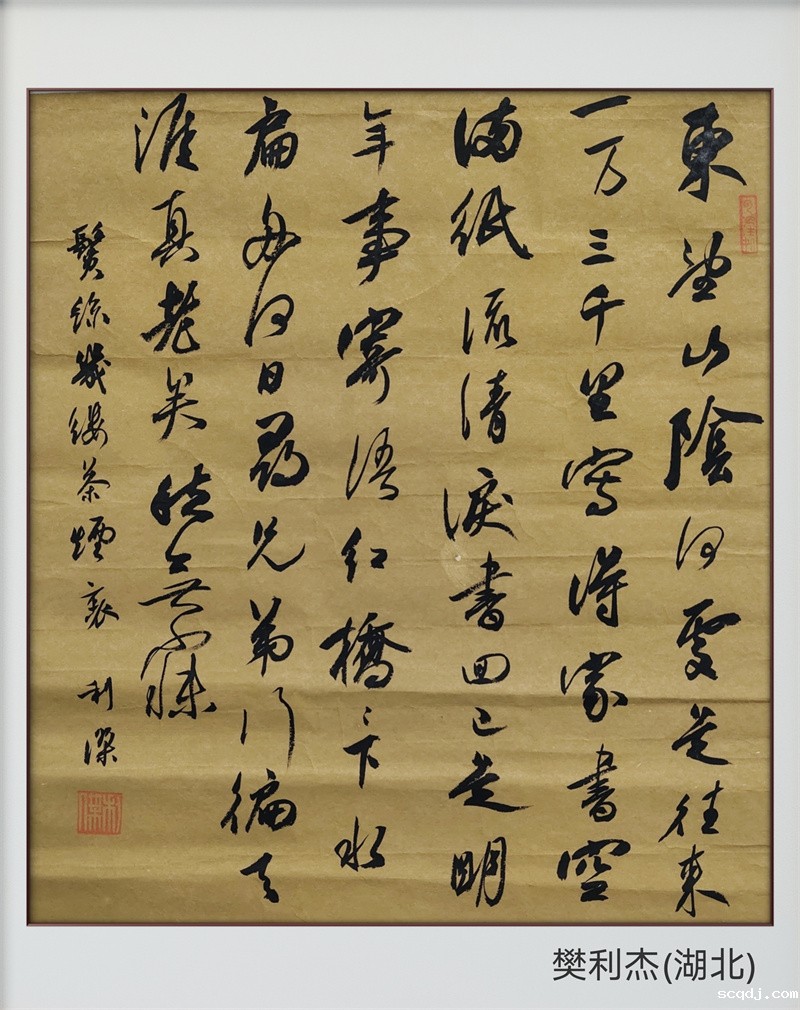 東望山陰何處是往來
一万三千里寫得家書空
滿紙流清淚書回已是明
年事寄語紅橋々下水
扁舟何日尋兄弟行徧天
涯真老矣愁無寐
鬢絲幾縷茶煙裏 利傑
樊利杰(湖北)
scqdj.com